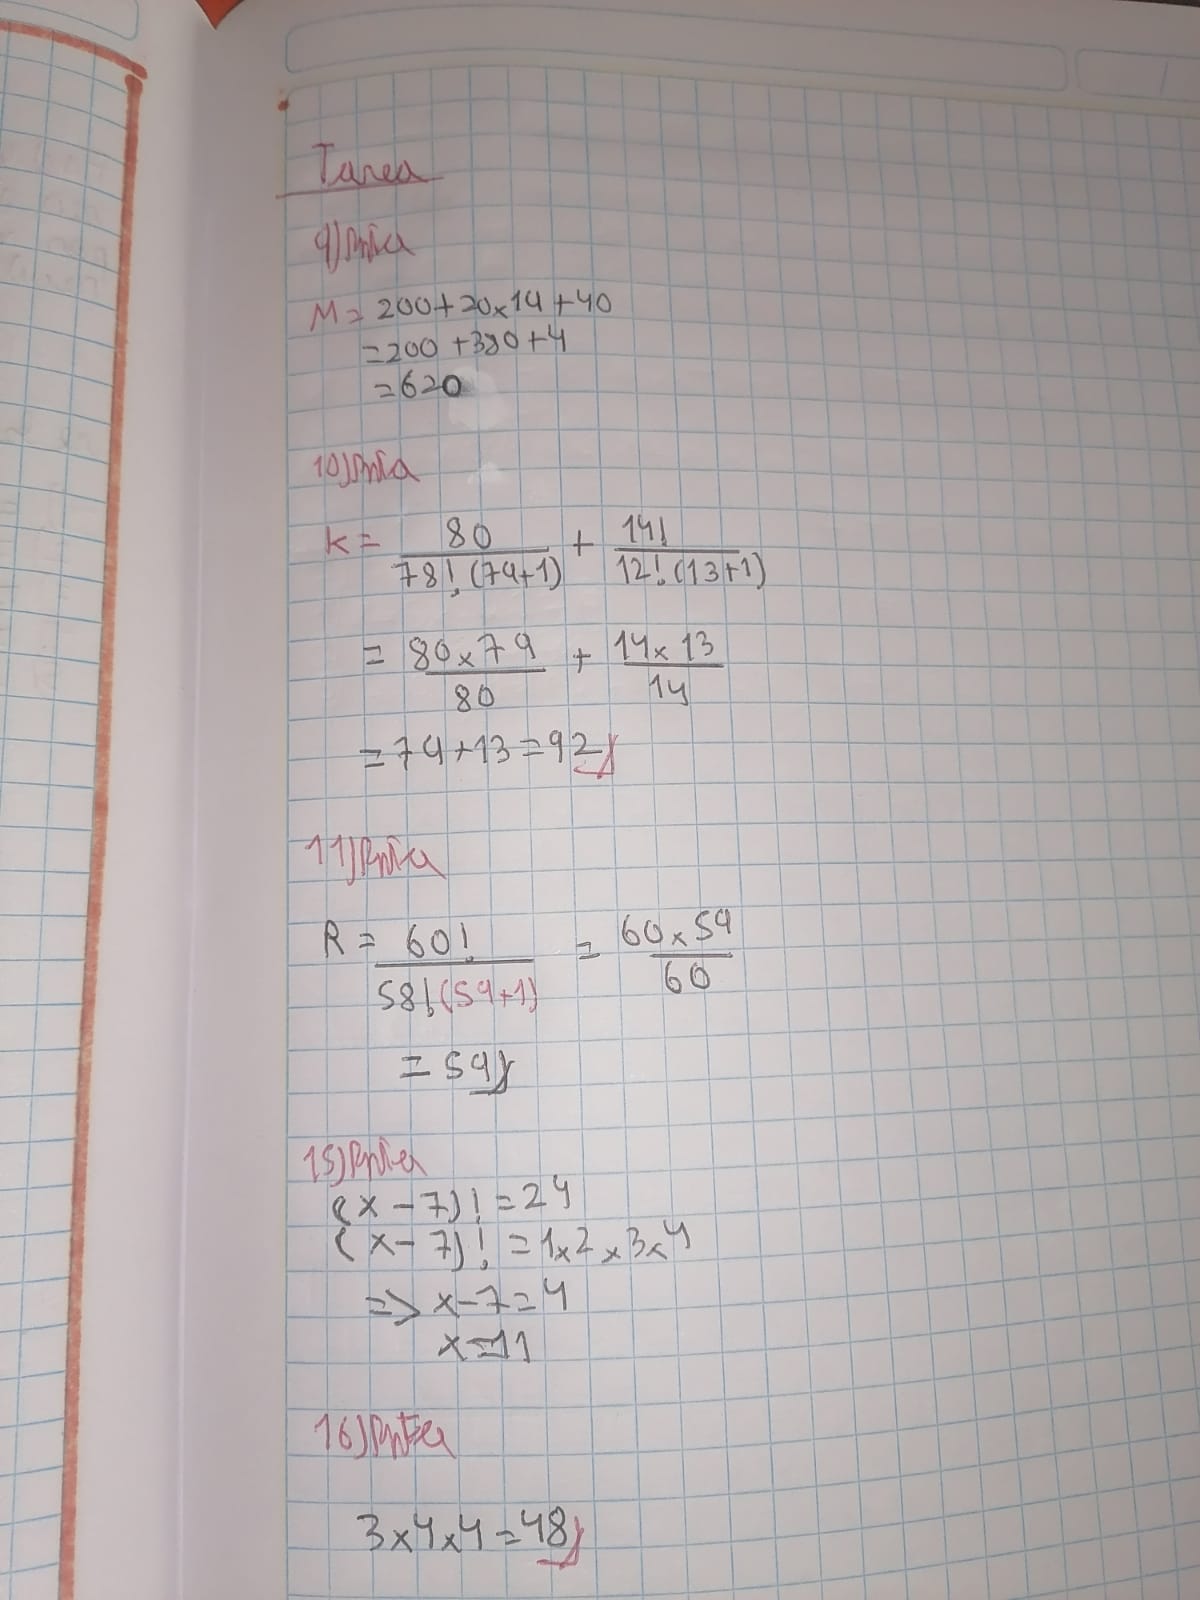 Tarea
9) Rpta
M = 200+20x19+40
=200 +380+4
=620
10) Rpta
K = 80/78!(79+1) + 14!/12!(13+1)
= 80x79/80 + 14x13/14
=79+13=92
11) Rpta
R = 60!/58!(59+1) = 60x59/60
= 59
15) Rpta
(x-7)! = 24
(x-7)! = 1x2x3x4
=> x-7=4
x=11
16) Rpta
3x4x4=48